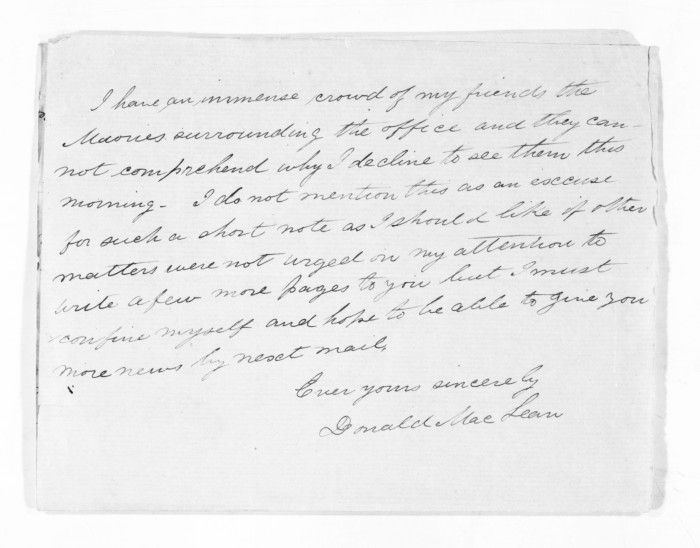 I have an immense crowd of my friends the
Maories surrounding the office and they can-
not comprehend why I decline to see them this
morning - I do not mention this as an excuse
for such a short note as I should like if other
matters were not urged on my attention to
write a few more pages to you but I must
confine myself and hope to be able to give you
more news by next mail.
Ever yours sincerely
Donald Mac Lean